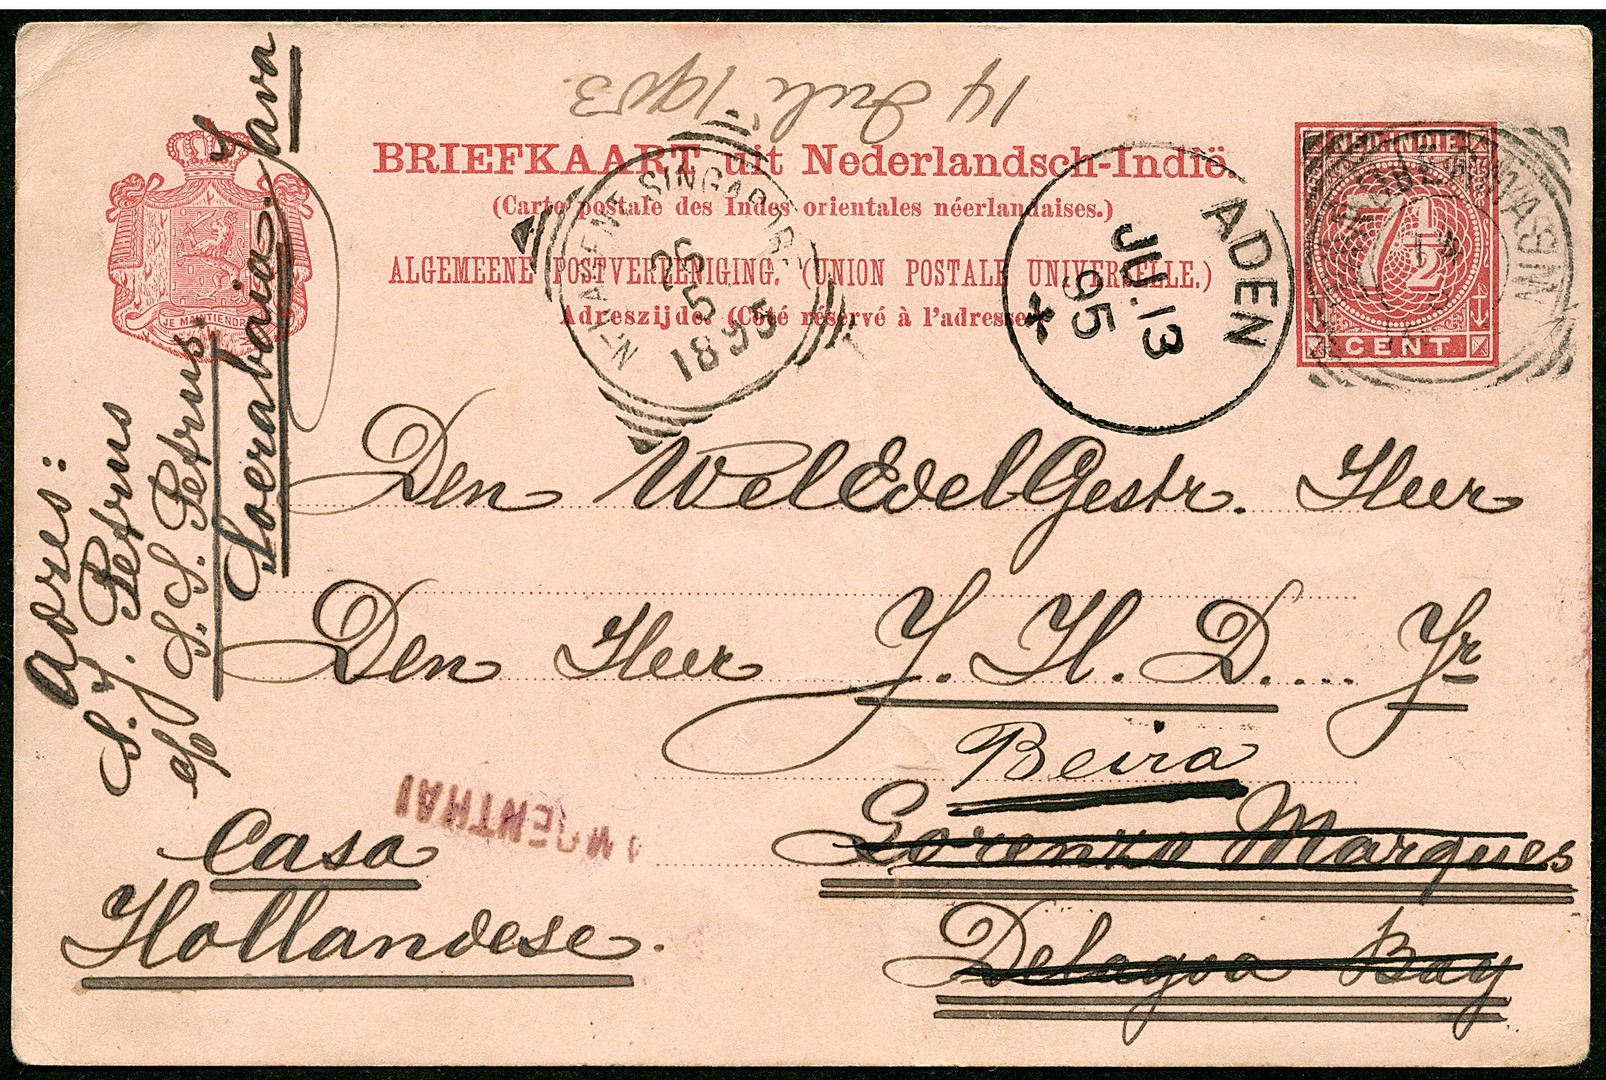 14 Juli 1903.
BRIEFKAART uit Nederlandsch-Indië
(Carte postale des Indes orientales néerlandaises.)
ALGEMEENE POSTVEREENIGING. (UNION POSTALE UNIVERSELLE.)
Adreszijde. (Côté réservé à l'adresse
JE MAINTIENDRAI
NED-INDIE
7½
CENT
N-I AGENT SINGAPORE
26
5
1895
ADEN
JU.13
95
Den WelEdelGestr. Heer
Den Heer J. H. D.... Jr
Beira
Lorenzo Marques
Delagoa Bay
Casa
Hollandese.
Adres:
S. J. Petrus
c/o S. S. Petrus.
Soerabaia. Java